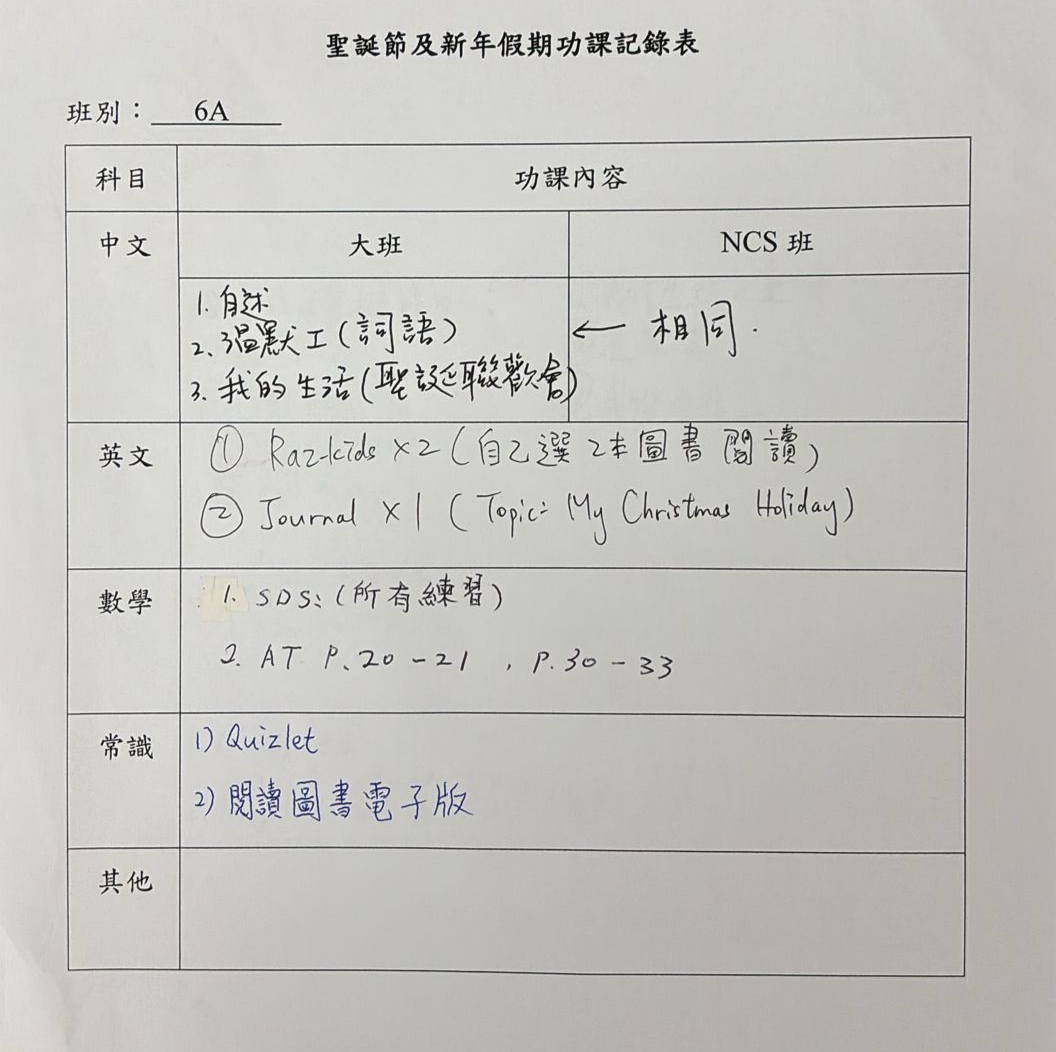 聖誕節及新年假期功課記錄表
班別： 6A
科目 功課內容
中文 大班 NCS 班
1. 自述
2. 溫默工(詞語) ← 相同.
3. 我的生活(聖誕聯歡會)
英文 ① Raz-kids x2 (自己選2本圖書閱讀)
② Journal x1 (Topic: My Christmas Holiday)
數學 1. SDS: (所有練習)
2. AT P.20-21, P.30-33
常識 1) Quizlet
2) 閱讀圖書電子版
其他